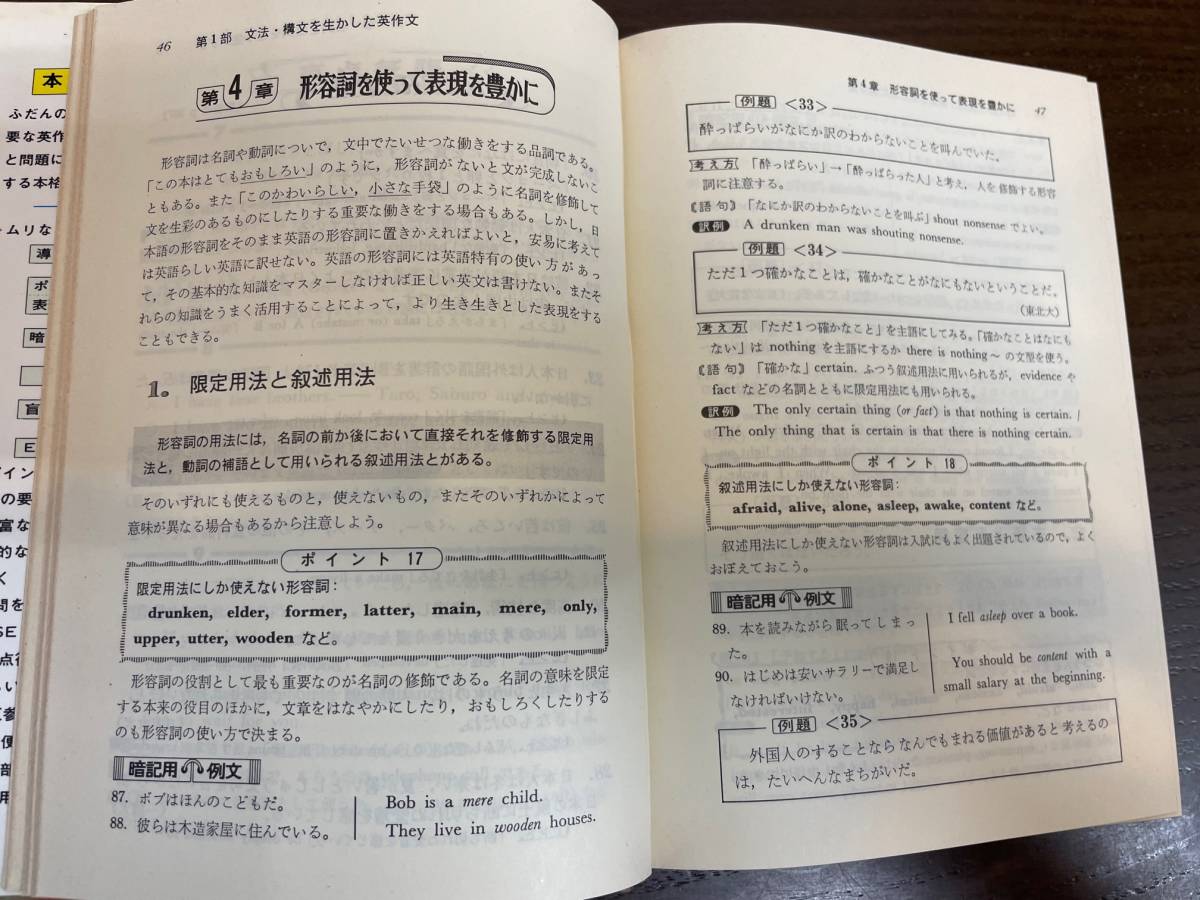 本
ふだんの
要な英作
と問題に
する本格
ムリな
導
ポ
表
暗
盲
E
イン
の要
富な
的な
く
問を
SE
点得
い
参
便
部
用
46 第1部 文法・構文を生かした英作文
第4章 形容詞を使って表現を豊かに
形容詞は名詞や動詞について，文中でたいせつな働きをする品詞である。
「この本はとてもおもしろい」のように，形容詞がないと文が完成しないこ
ともある。また「このかわいらしい，小さな手袋」のように名詞を修飾して
文を生彩のあるものにしたりする重要な働きをする場合もある。しかし，日
本語の形容詞をそのまま英語の形容詞に置きかえればよいと，安易に考えて
は英語らしい英語に訳せない。英語の形容詞には英語特有の使い方があっ
て，その基本的な知識をマスターしなければ正しい英文は書けない。またそ
れらの知識をうまく活用することによって，より生き生きとした表現をする
こともできる。
1. 限定用法と叙述用法
形容詞の用法には，名詞の前か後において直接それを修飾する限定用
法と，動詞の補語として用いられる叙述用法とがある。
そのいずれにも使えるものと，使えないもの，またそのいずれかによって
意味が異なる場合もあるから注意しよう。
ポイント 17
限定用法にしか使えない形容詞：
drunken, elder, former, latter, main, mere, only,
upper, utter, wooden など。
形容詞の役割として最も重要なのが名詞の修飾である。名詞の意味を限定
する本来の役目のほかに，文章をはなやかにしたり，おもしろくしたりする
のも形容詞の使い方で決まる。
暗記用 例文
87. ボブはほんのこどもだ。 Bob is a mere child.
88. 彼らは木造家屋に住んでいる。 They live in wooden houses.
第4章 形容詞を使って表現を豊かに 47
例題 <33>
酔っぱらいがなにか訳のわからないことを叫んでいた。
考え方 「酔っぱらい」→「酔っぱらった人」と考え，人を修飾する形容
詞に注意する。
《語句》「なにか訳のわからないことを叫ぶ」shout nonsense でよい。
訳例 A drunken man was shouting nonsense.
例題 <34>
ただ1つ確かなことは，確かなことがなにもないということだ。
（東北大）
考え方 「ただ1つ確かなこと」を主語にしてみる。「確かなことはなにも
ない」は nothing を主語にするか there is nothing～ の文型を使う。
《語句》「確かな」certain. ふつう叙述用法に用いられるが，evidence や
fact などの名詞とともに限定用法にも用いられる。
訳例 The only certain thing (or fact) is that nothing is certain. /
The only thing that is certain is that there is nothing certain.
ポイント 18
叙述用法にしか使えない形容詞：
afraid, alive, alone, asleep, awake, content など。
叙述用法にしか使えない形容詞は入試にもよく出題されているので，よく
おぼえておこう。
暗記用 例文
89. 本を読みながら眠ってしまっ
た。
I fell asleep over a book.
90. はじめは安いサラリーで満足し
なければいけない。
You should be content with a
small salary at the beginning.
例題 <35>
外国人のすることならなんでもまねる価値があると考えるの
は，たいへんなまちがいだ。